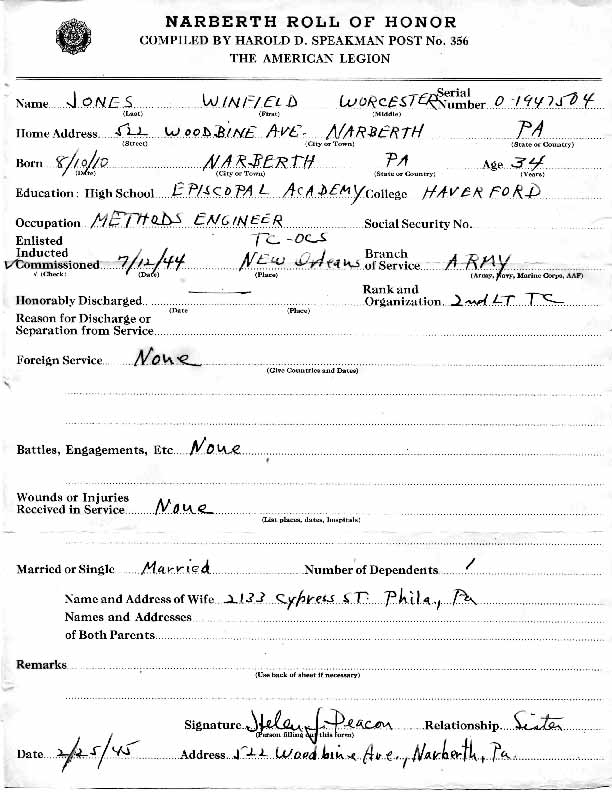 NARBERTH ROLL OF HONOR
COMPILED BY HAROLD D. SPEAKMAN POST No. 356
THE AMERICAN LEGION
Name JONES WINFIELD WORCESTER Serial Number 0-1947504
(Last) (First) (Middle)
Home Address 522 WOODBINE AVE. NARBERTH PA
(Street) (City or Town) (State or Country)
Born 8/10/10 NARBERTH PA Age 34
(Date) (City or Town) (State or Country) (Years)
Education: High School EPISCOPAL ACADEMY College HAVERFORD
Occupation METHODS ENGINEER Social Security No.
Enlisted TC-OCS
Inducted Branch
✓Commissioned 7/12/44 NEW Orleans of Service ARMY
√ (Check) (Date) (Place) (Army, Navy, Marine Corps, AAF)
Rank and
Honorably Discharged Organization 2nd LT TC
(Date (Place)
Reason for Discharge or
Separation from Service
Foreign Service None
(Give Countries and Dates)
Battles, Engagements, Etc. None
Wounds or Injuries
Received in Service None
(List places, dates, hospitals)
Married or Single Married Number of Dependents 1
Name and Address of Wife 2133 Cypress ST. Phila., Pa
Names and Addresses
of Both Parents
Remarks
(Use back of sheet if necessary)
Signature Helen J. Deacon Relationship Sister
(Person filling out this form)
Date 2/25/45 Address 522 Woodbine Ave., Narberth, Pa.